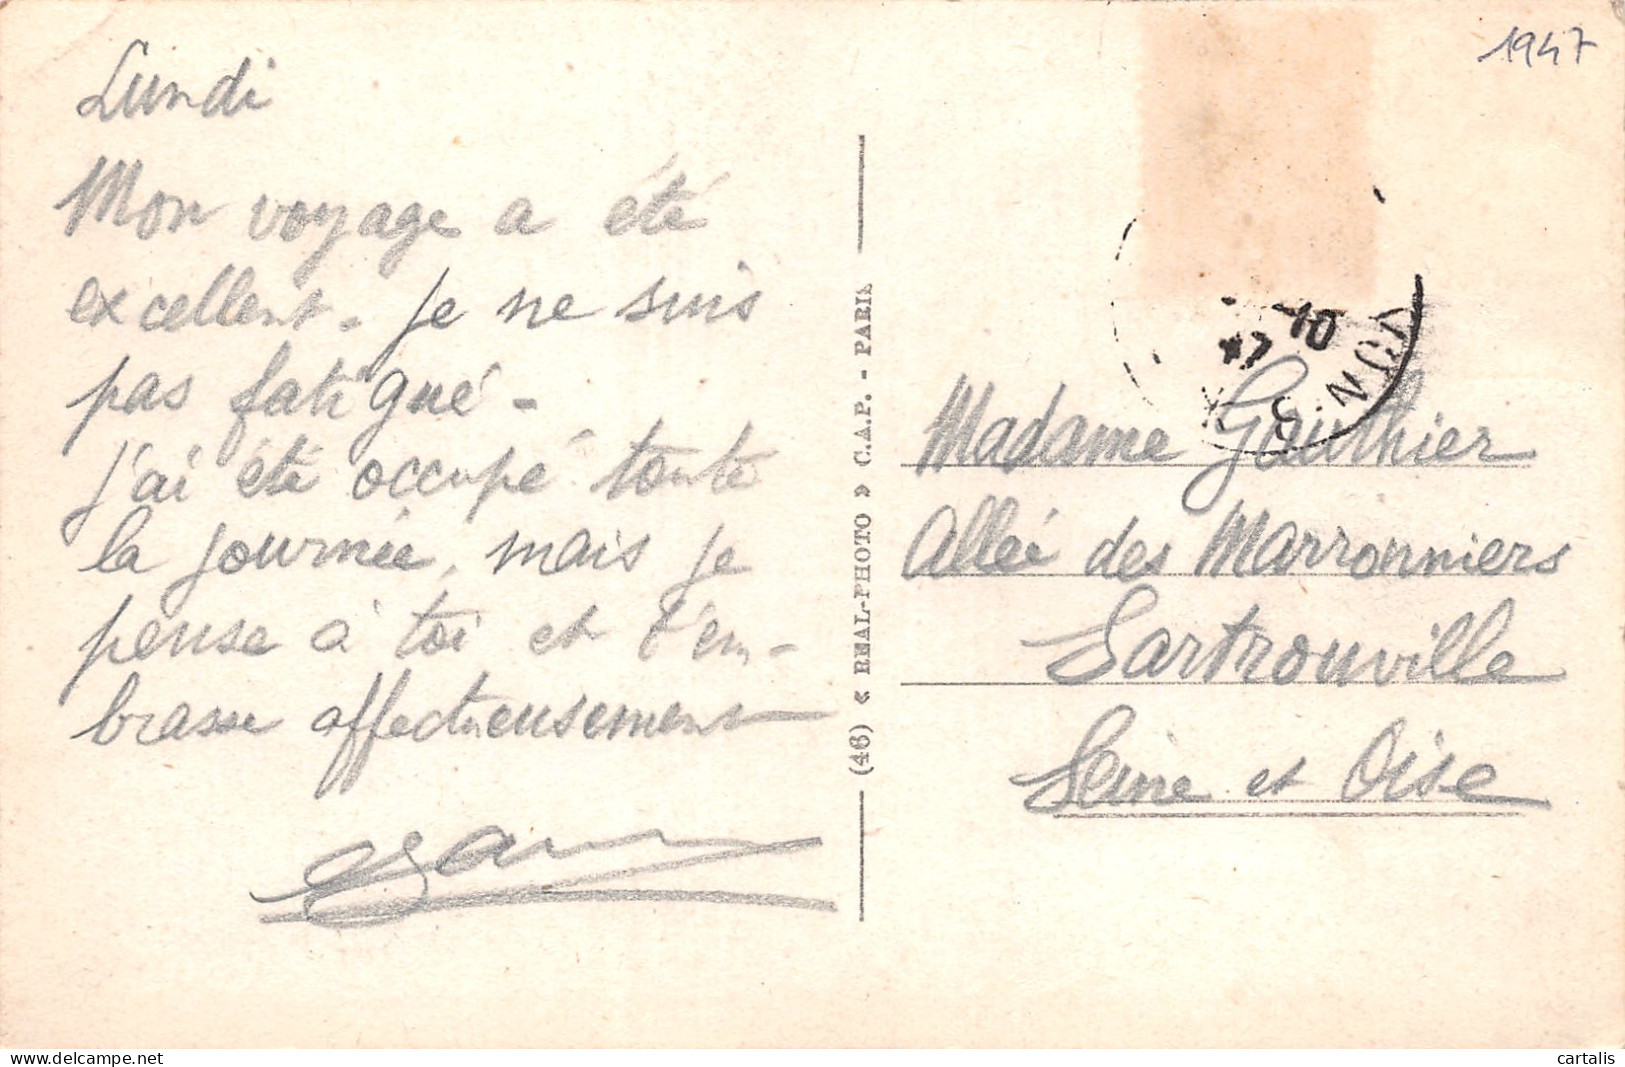 1947
Lundi
Mon voyage a été
excellent. je ne suis
pas fatigué -
j'ai été occupé toute
la journée, mais je
pense à toi et t'em-
brasse affectueusement
(46) « REAL-PHOTO » C.A.P. - PARIS
10
47
Madame Gauthier
Allée des Marronniers
Sartrouville
Seine et Oise
delcampe.net
cartalis